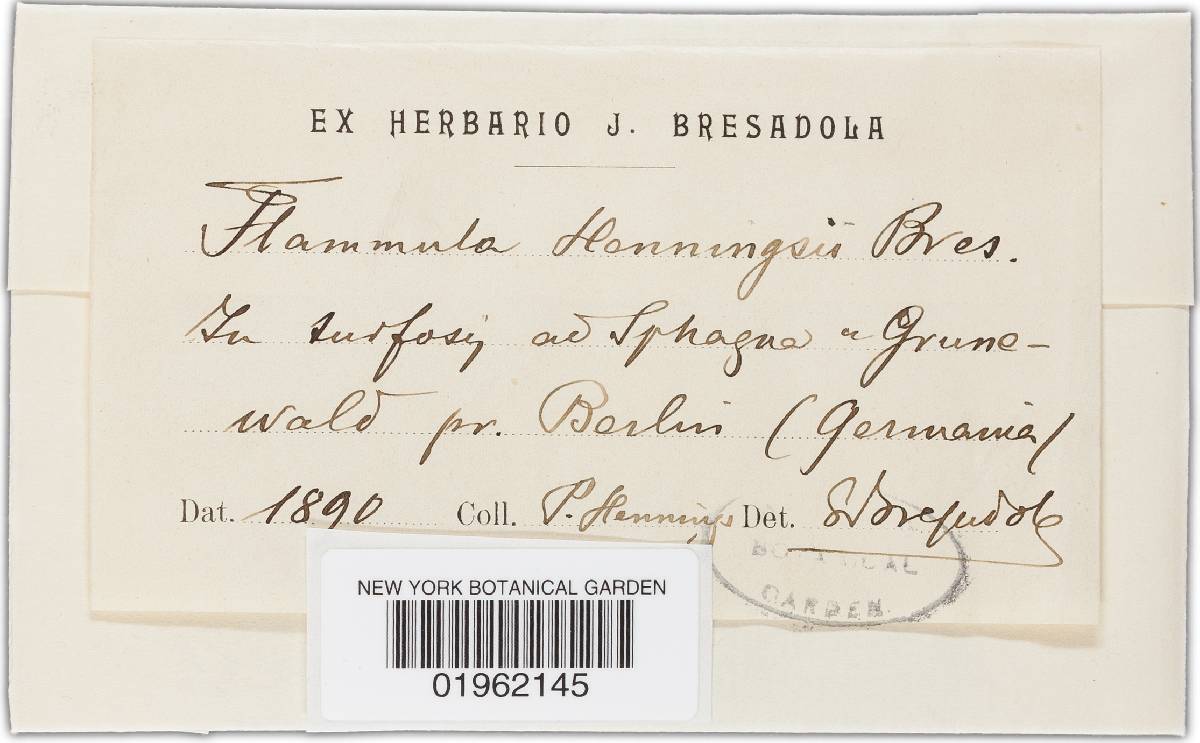 EX HERBARIO J. BRESADOLA
Flammula Henningsii Bres.
In turfosis ad Sphagna Grune-
wald pr. Berlin (Germania)
Dat. 1890 Coll. P. Hennings Det. Bresadola
BOTANICAL
GARDEN
NEW YORK BOTANICAL GARDEN
01962145